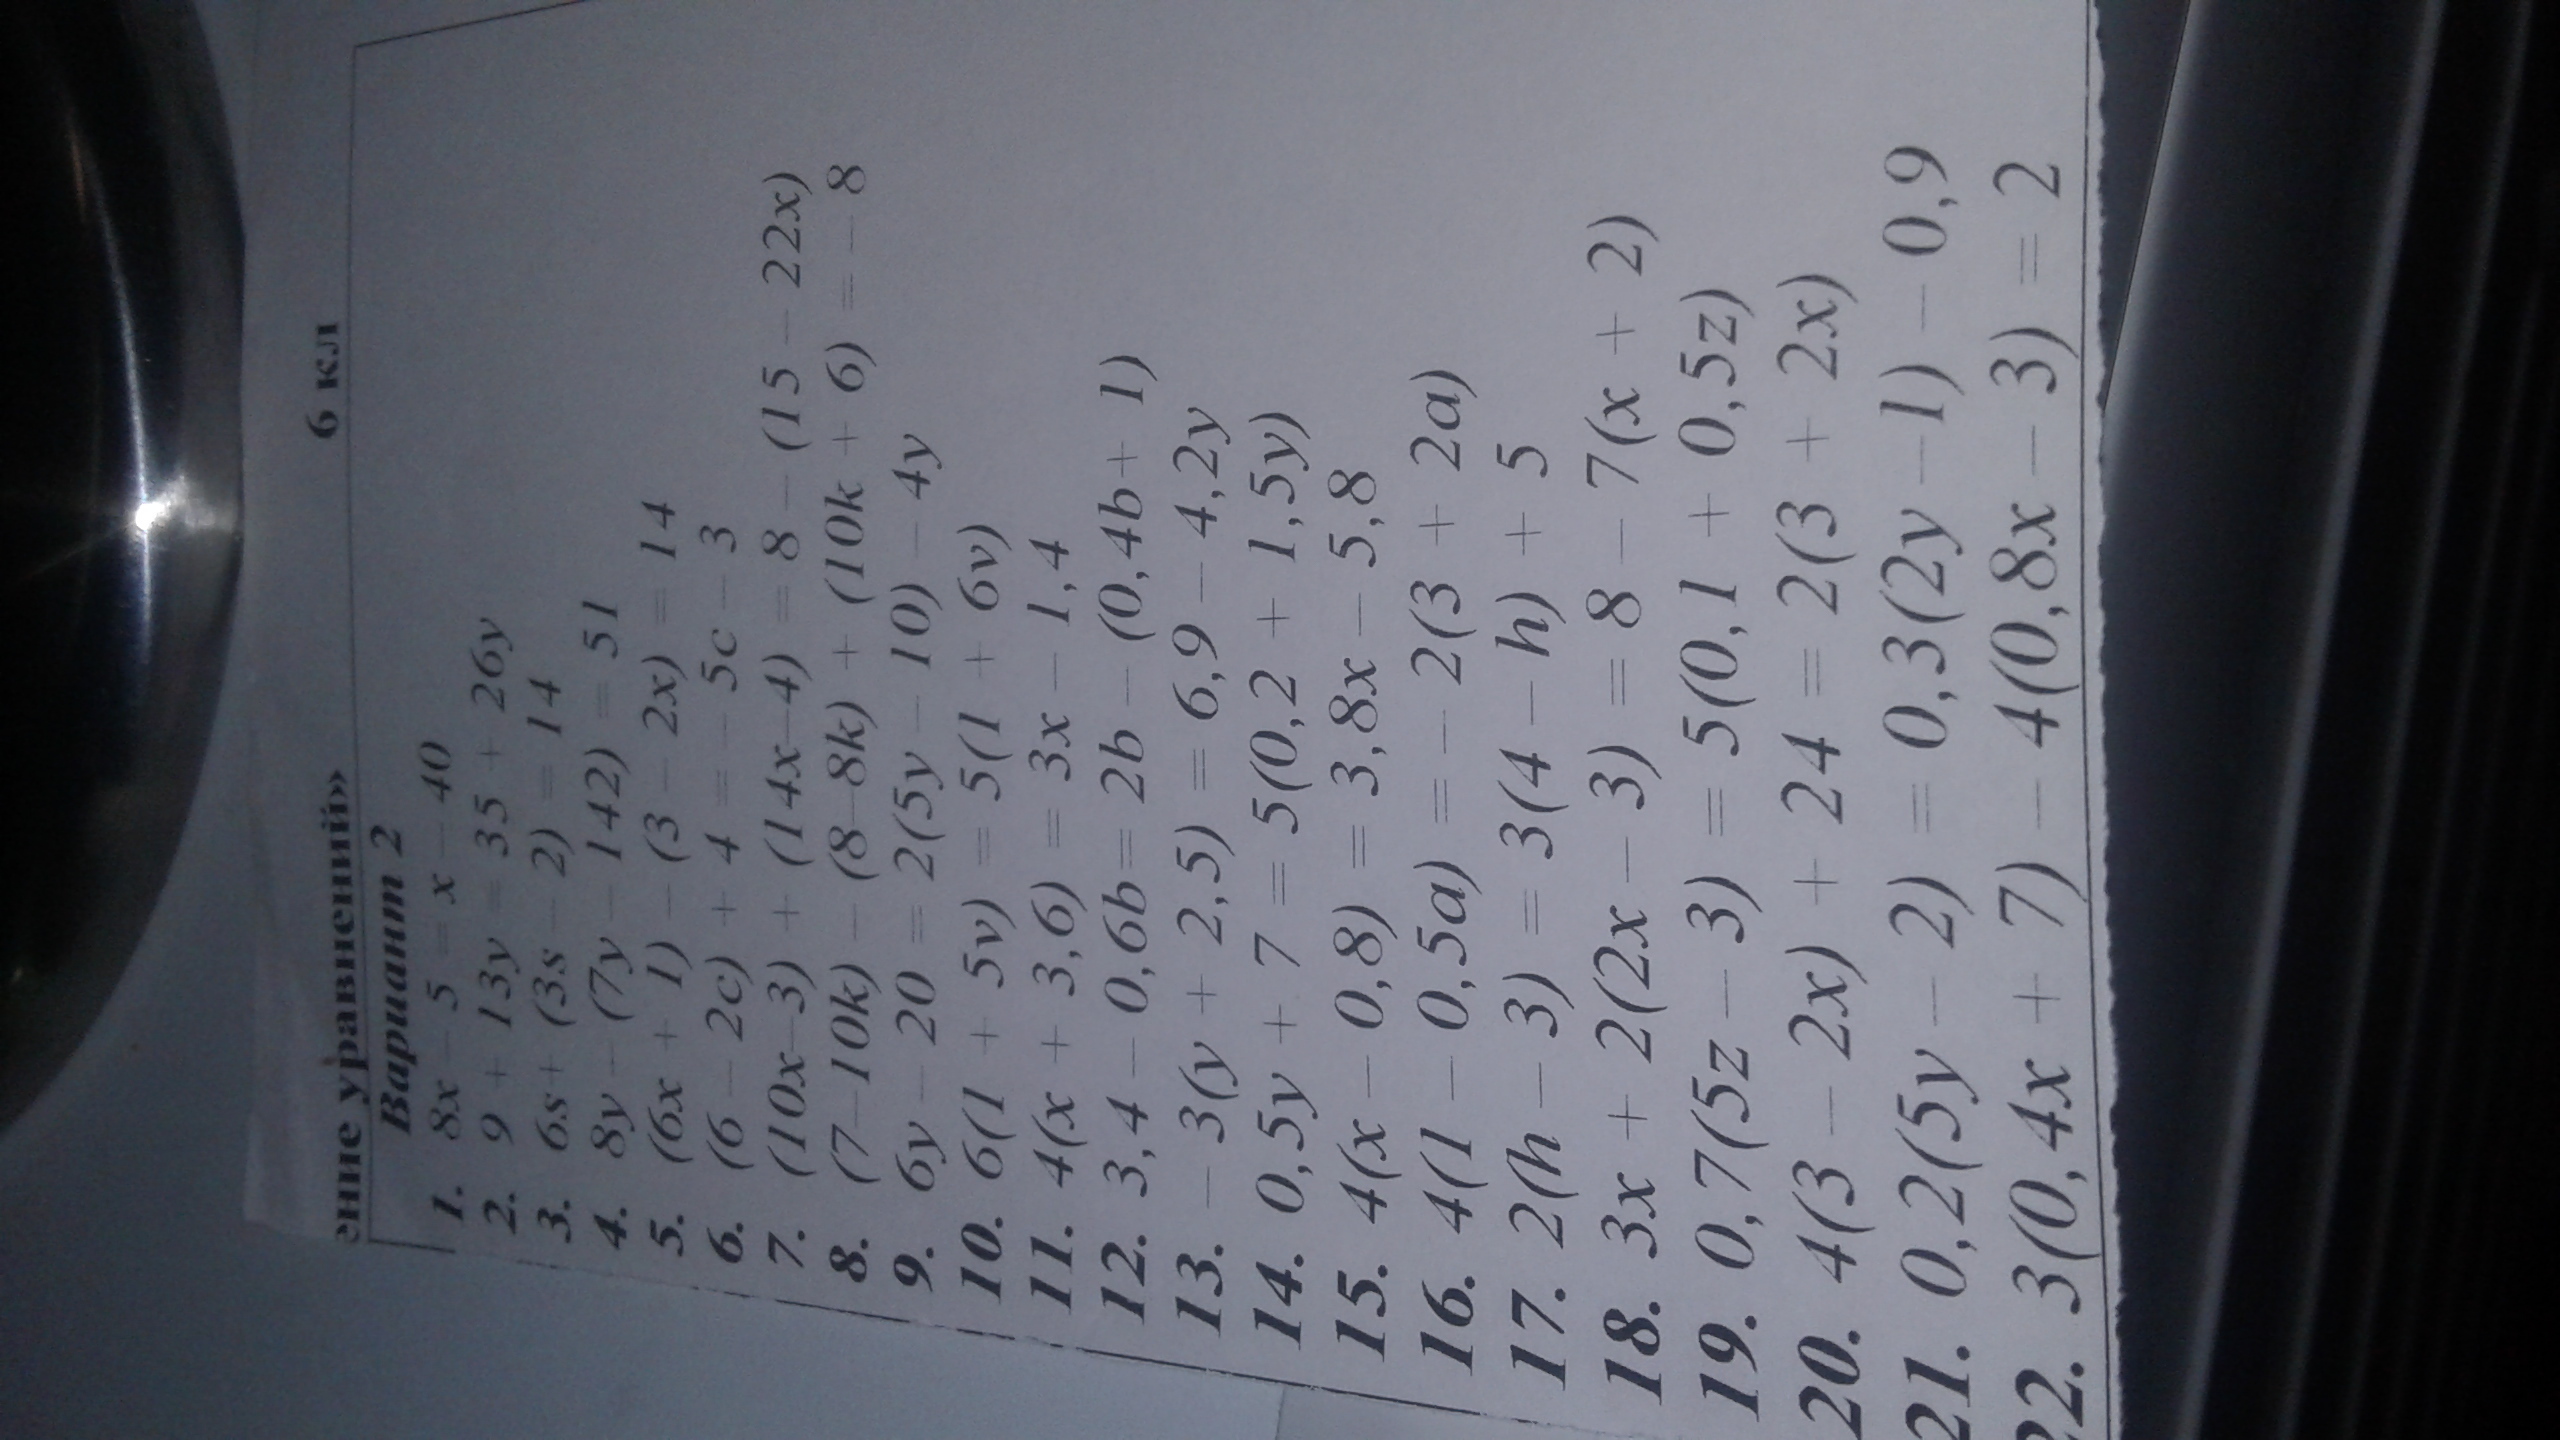 ение уравнений» 6 кл
Вариант 2
1. 8x – 5 = x – 40
2. 9 + 13y = 35 + 26y
3. 6s+ (3s – 2) = 14
4. 8y – (7y – 142) = 51
5. (6x + 1) – (3 – 2x) = 14
6. (6 – 2c) + 4 = – 5c – 3
7. (10x–3) + (14x–4) = 8 – (15 – 22x)
8. (7–10k) – (8–8k) + (10k + 6) = – 8
9. 6y – 20 = 2(5y – 10) – 4y
10. 6(1 + 5v) = 5(1 + 6v)
11. 4(x + 3,6) = 3x – 1,4
12. 3,4 – 0,6b= 2b – (0,4b+ 1)
13. – 3(y + 2,5) = 6,9 – 4,2y
14. 0,5y + 7 = 5(0,2 + 1,5y)
15. 4(x – 0,8) = 3,8x – 5,8
16. 4(1 – 0,5a) = – 2(3 + 2a)
17. 2(h – 3) = 3(4 – h) + 5
18. 3x + 2(2x – 3) = 8 – 7(x + 2)
19. 0,7(5z – 3) = 5(0,1 + 0,5z)
20. 4(3 – 2x) + 24 = 2(3 + 2x)
21. 0,2(5y – 2) = 0,3(2y –1) – 0,9
22. 3(0,4x + 7) – 4(0,8x – 3) = 2